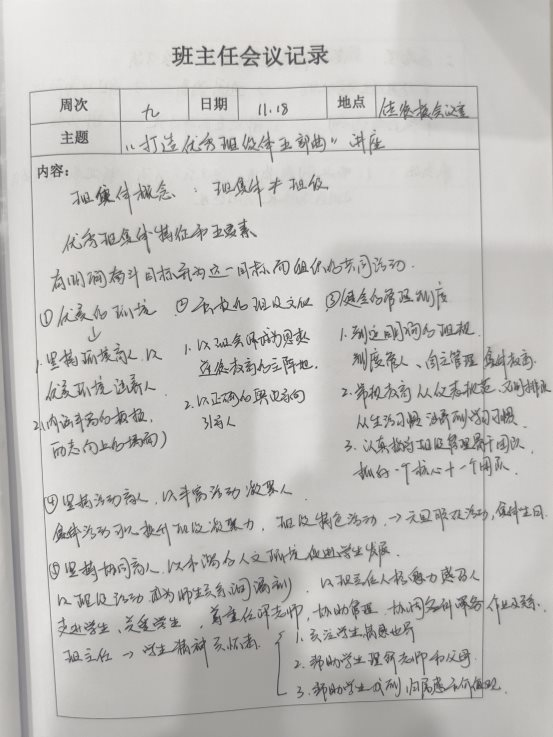 班主任会议记录
周次 九 日期 11.18 地点 会议室
主题 "打造优秀班级体五部曲"讲座
内容：
班集体概念：班集体≠班级
优秀班集体特征和五要素
有明确奋斗目标和为这一目标而组织的共同活动.
①优美的环境 ②和教的班级文化 ③健全的管理制度
1.坚持环境育人,以
优美环境 人
2.内涵丰富的板报,
向上的
1.以班会课成为思想
道德教育的主阵地.
2.以正确的舆论导向
引导人
1.制定明确的班规.
制度育人、自主管理 集体教育
2.常规教育从仪表规范、文明排队
从生活习惯 到学习习惯
3.认真构建班级管理骨干团队
抓好一个核心十一个团队.
④坚持活动育人,以丰富活动凝聚人
集体活动可以提升班级凝聚力,班级特色活动,→元旦联欢活动,集体生日.
⑤坚持协同育人,以和谐的人文环境促进学生发展.
以班级活动成为师生关系润滑剂,以班主任人格魅力感召人
走进学生、关爱学生,尊重任课老师,协助管理、协调各科 作业关系.
班主任→学生精神关怀者
1.关注学生情感世界
2.帮助学生理解老师和父母.
3.帮助学生找到归属感和价值观.